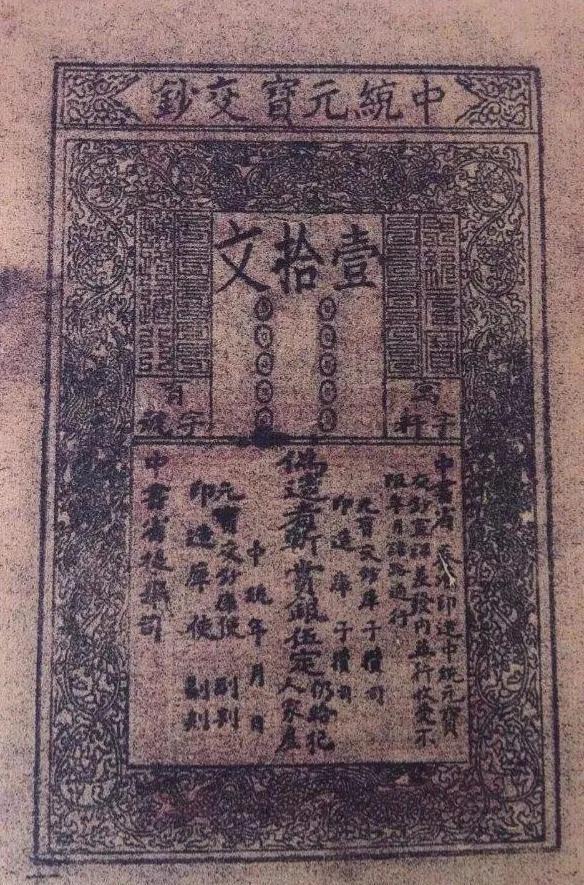 中統元寶交鈔
壹拾文
字料
字號
中書省奏准印造中統元寶
交鈔宣課差發內並行收受不
限年月諸路通行
元寶交鈔庫子攢司
印造庫子攢司
偽造者斬賞銀伍定仍給犯
人家產
中統年月日
元寶交鈔庫使副判
印造庫使副判
中書省提舉司